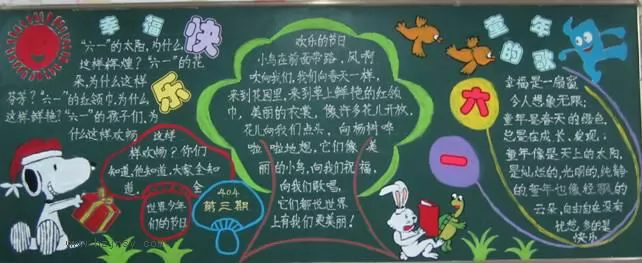 幸福快乐
"六一"的太阳,为什么
这样辉煌?"六一"的花
朵,为什么这样
芬芳?"六一"的红领巾,为什么
这样鲜艳?"六一"的孩子们,为
什么这样欢畅
这样
样欢畅?你们
知道,他知道,大家全知
道。
全
世界少年
们的节日
404
第三期
欢乐的节日
小鸟在前面带路,风啊
吹向我们,我们向春天一样,
来到花园里,来到草上鲜艳的红领
巾,美丽的衣裳,像许多花儿开放,
花儿向我们点头,向杨树哗
啦啦地想,它们像美
丽的小鸟,向我们祝福,
向我们歌唱,
它们都说世界
上有我们更美丽!
童年的歌
六一
幸福是一扇窗
令人想象无限;
童年是春天的绿色,
总是在成长、发现;
童年像是天上的太阳,
是灿烂的,光明的,纯静
的童年也像轻飘的
云朵,自由自在没有
忧愁,多的是
快乐